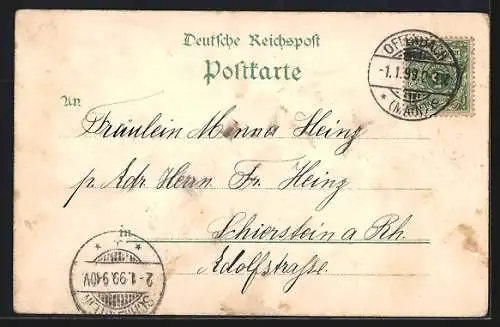 Deutsche Reichspost
Postkarte
OFFENBACH
-1.1.99.
* (MAIN) *
An
Fräulein Minna Heinz
p. Adr. Herrn Fr. Heinz
in Schierstein a Rh.
Adolfstrasse.
2.1.99.9-10V.
SCHIERSTEIN